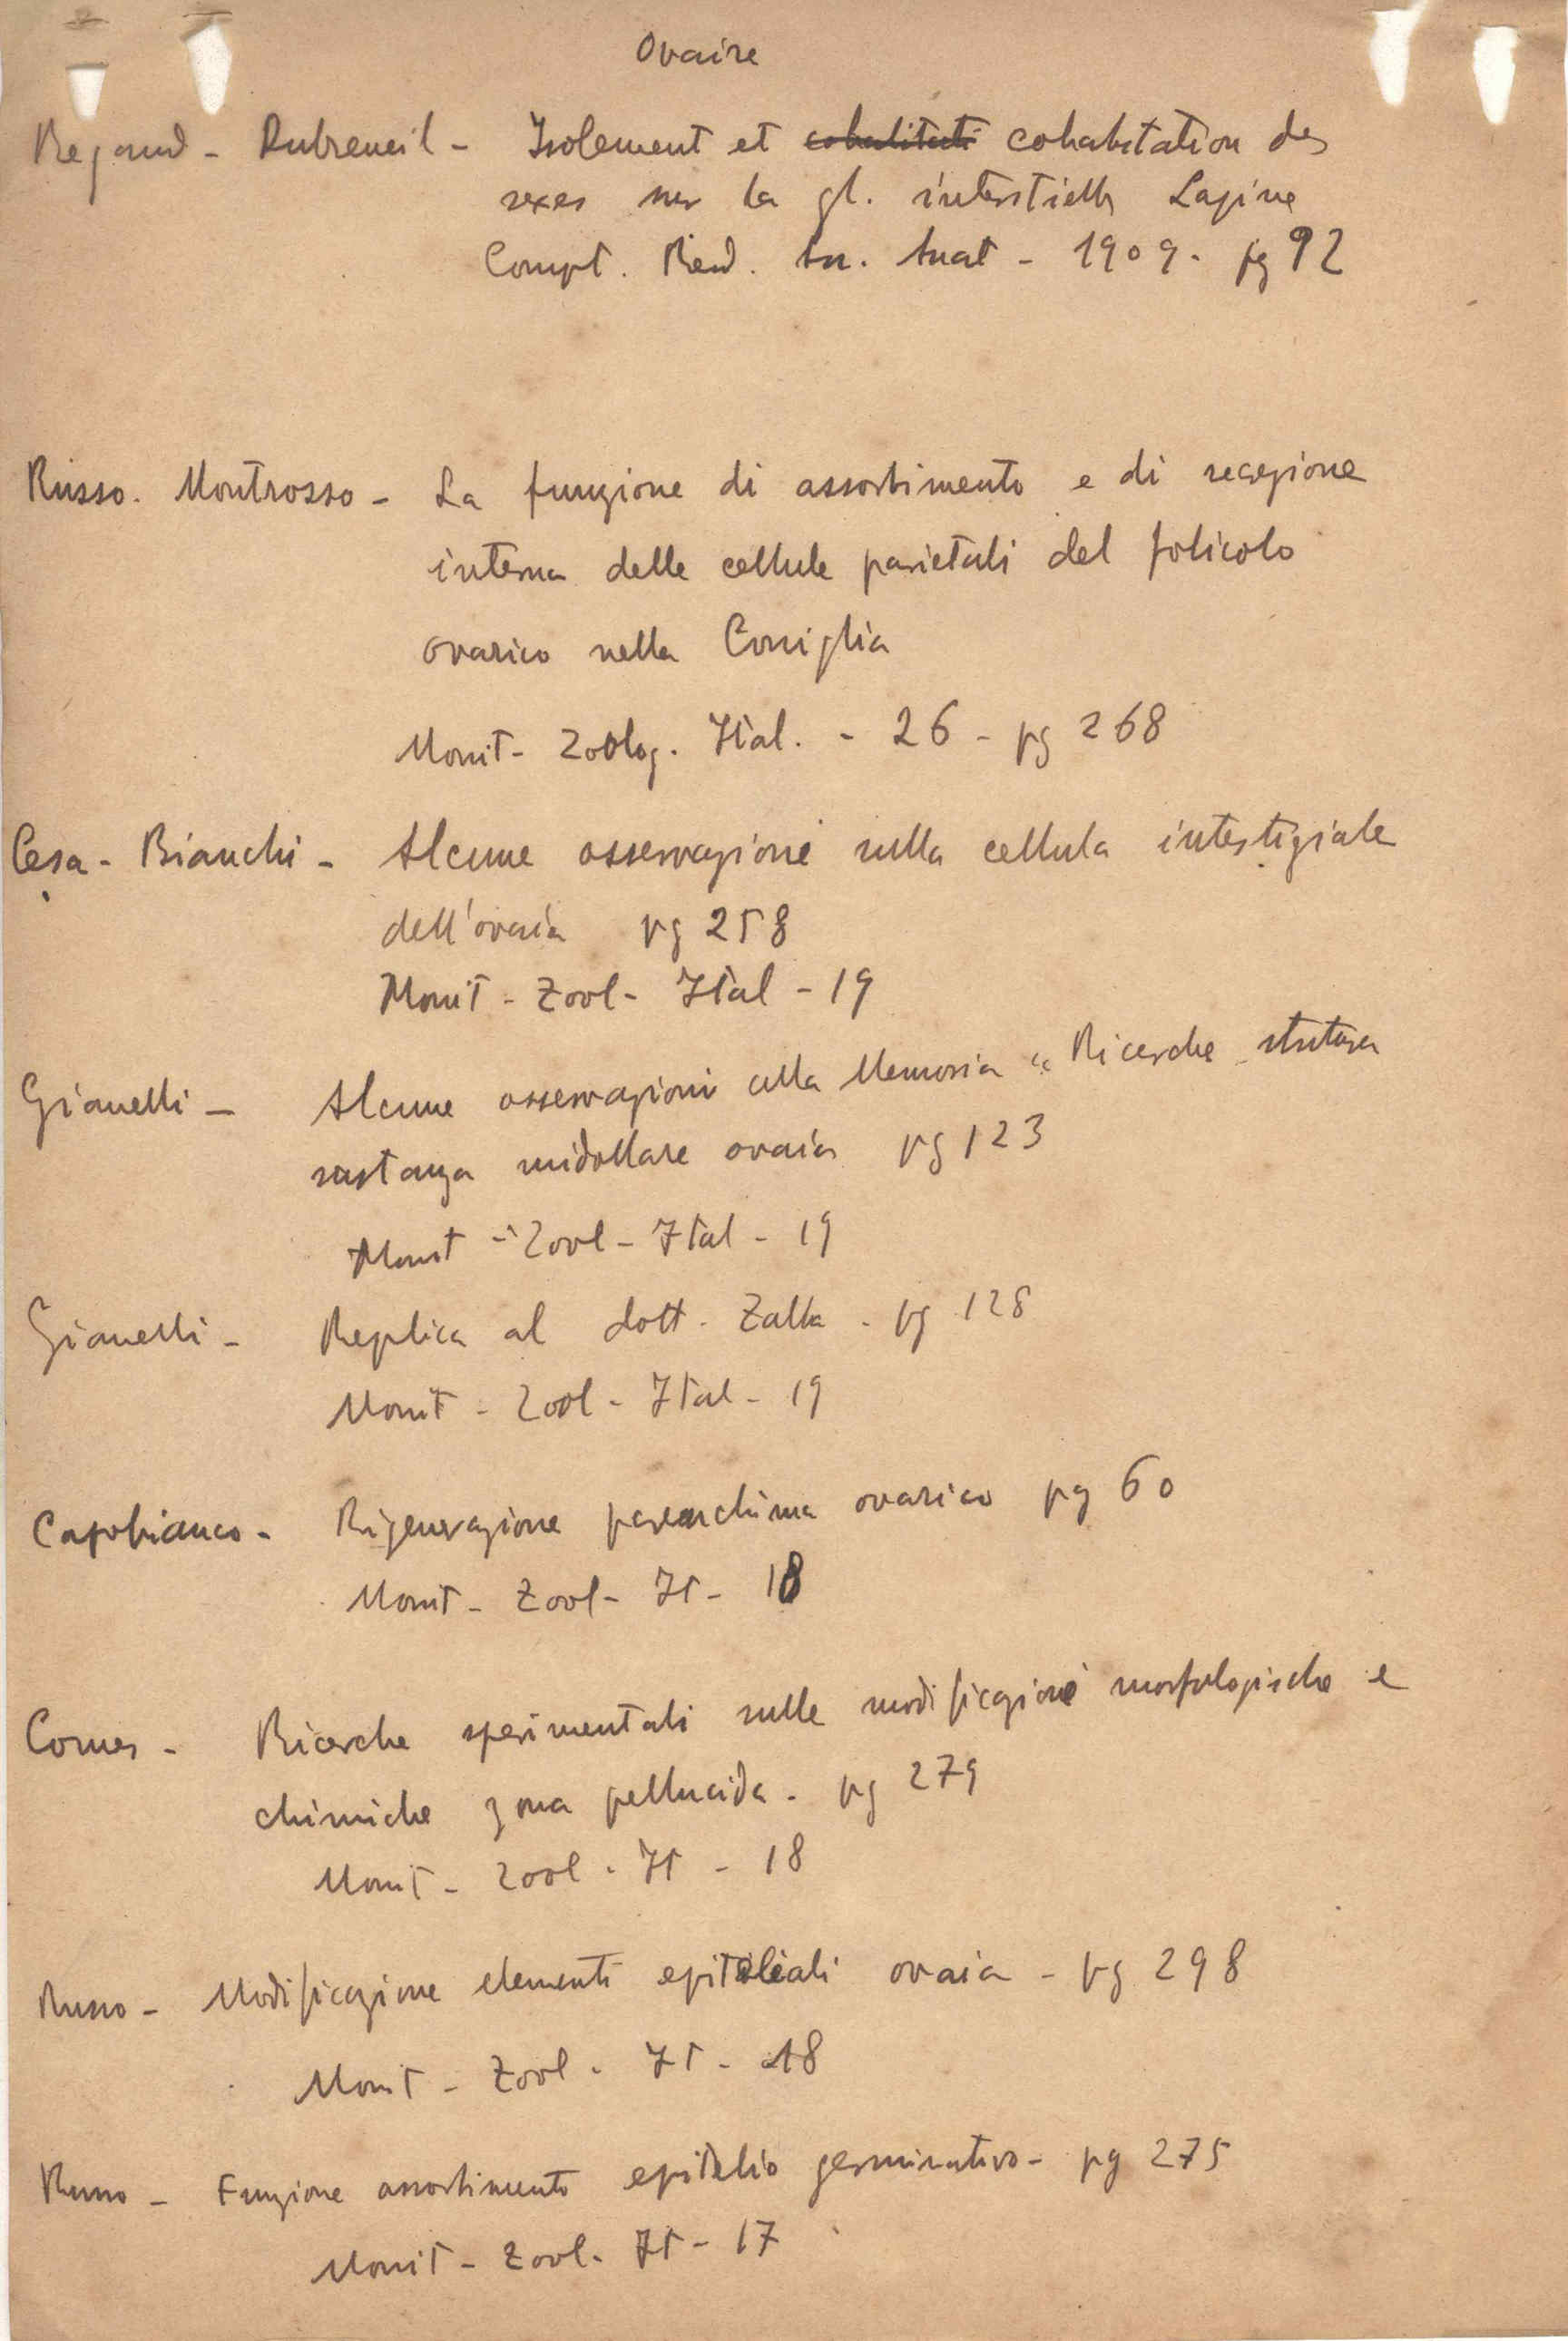 Ovaire
Regaud - Dubreuil - Isolement et cohabitati cohabitation des
sexes sur la gl. interstielle Lapine
Compt. Rend. An. Anat - 1909. pg 92
Russo. Montrosso - La funzione di assorbimento e di secrezione
interna delle cellule parietali del folicolo
ovarico nella Coniglia
Monit - Zoolog. Ital. - 26 - pg 268
Cesa - Bianchi - Alcune osservazioni sulla cellula intestiziale
dell'ovaia pg 258
Monit - Zool - Ital - 19
Gianelli - Alcune osservazioni alla Memoria " Ricerche strutura
sustanza midollare ovaia pg 123
Monit - Zool - Ital - 19
Gianelli - Replica al dott. Zalla - pg 128
Monit - Zool - Ital - 19
Capobianco - Rigenerazione parenchima ovarico pg 60
Monit - Zool - It - 18
Comes - Ricerche sperimentali sulle modificazioni morfologiche e
chimiche zona pellucida - pg 279
Monit - Zool - It - 18
Russo - Modificazione elementi epiteliali ovaia - pg 298
Monit - Zool - It - 18
Russo - Funzione assorbimento epitelio germinativo - pg 275
Monit - Zool - It - 17